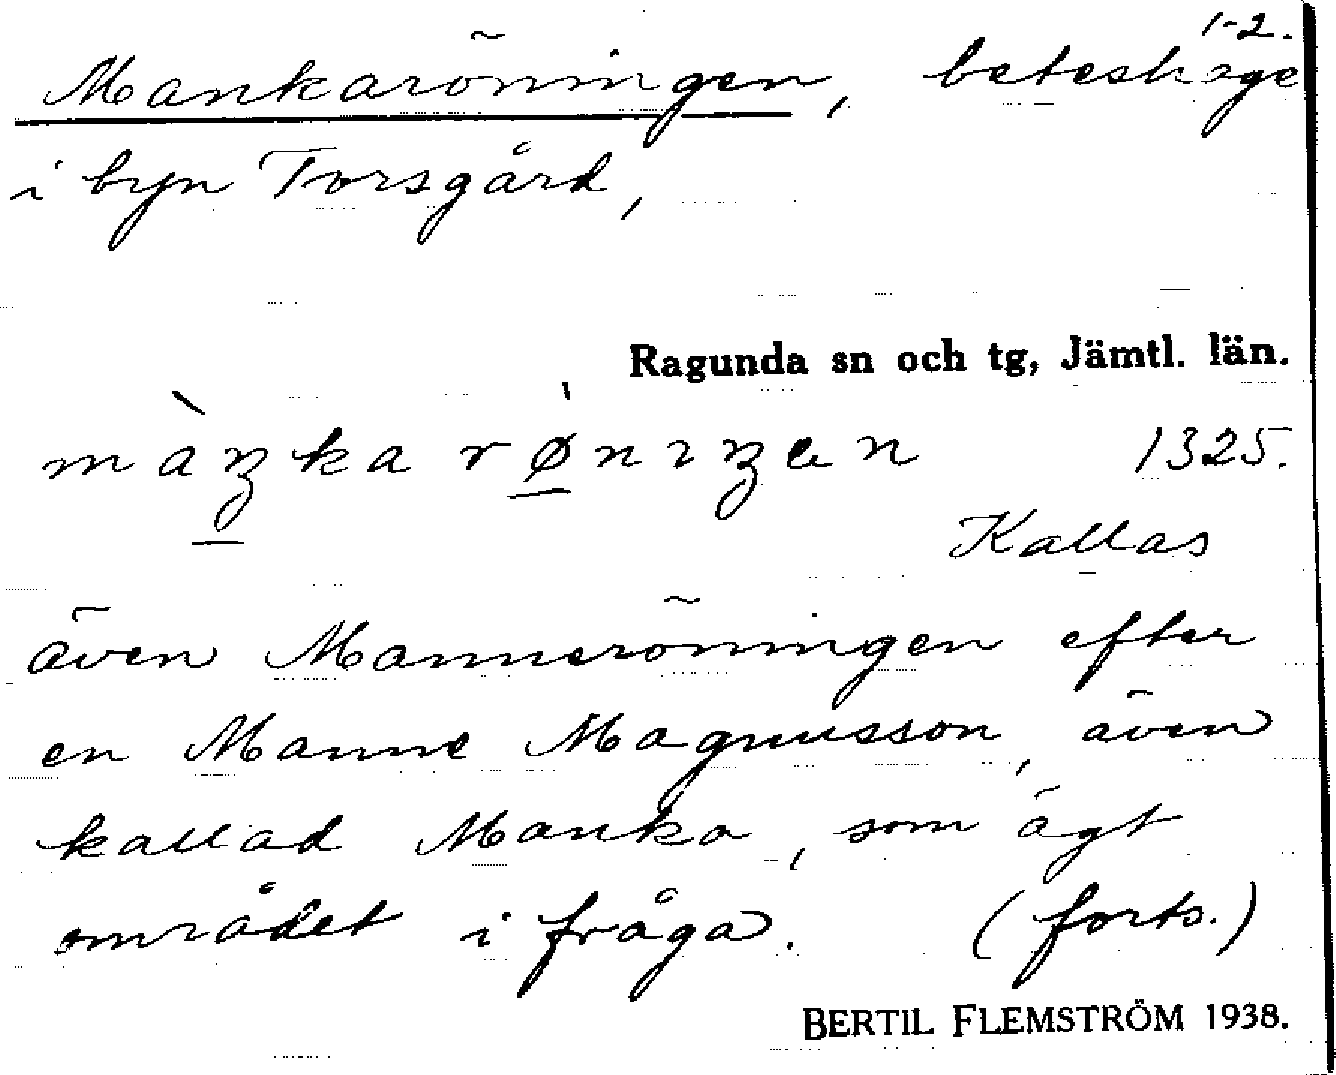 1-2.
Mankaröningen, beteshage
i byn Torsgård,
Ragunda sn och tg, Jämtl. län.
màŋka rø̀nıŋen 1325.
Kallas
även Manneröningen efter
en Manne Magnusson, även
kallad Manka, som ägt
området i fråga. (forts.)
BERTIL FLEMSTRÖM 1938.